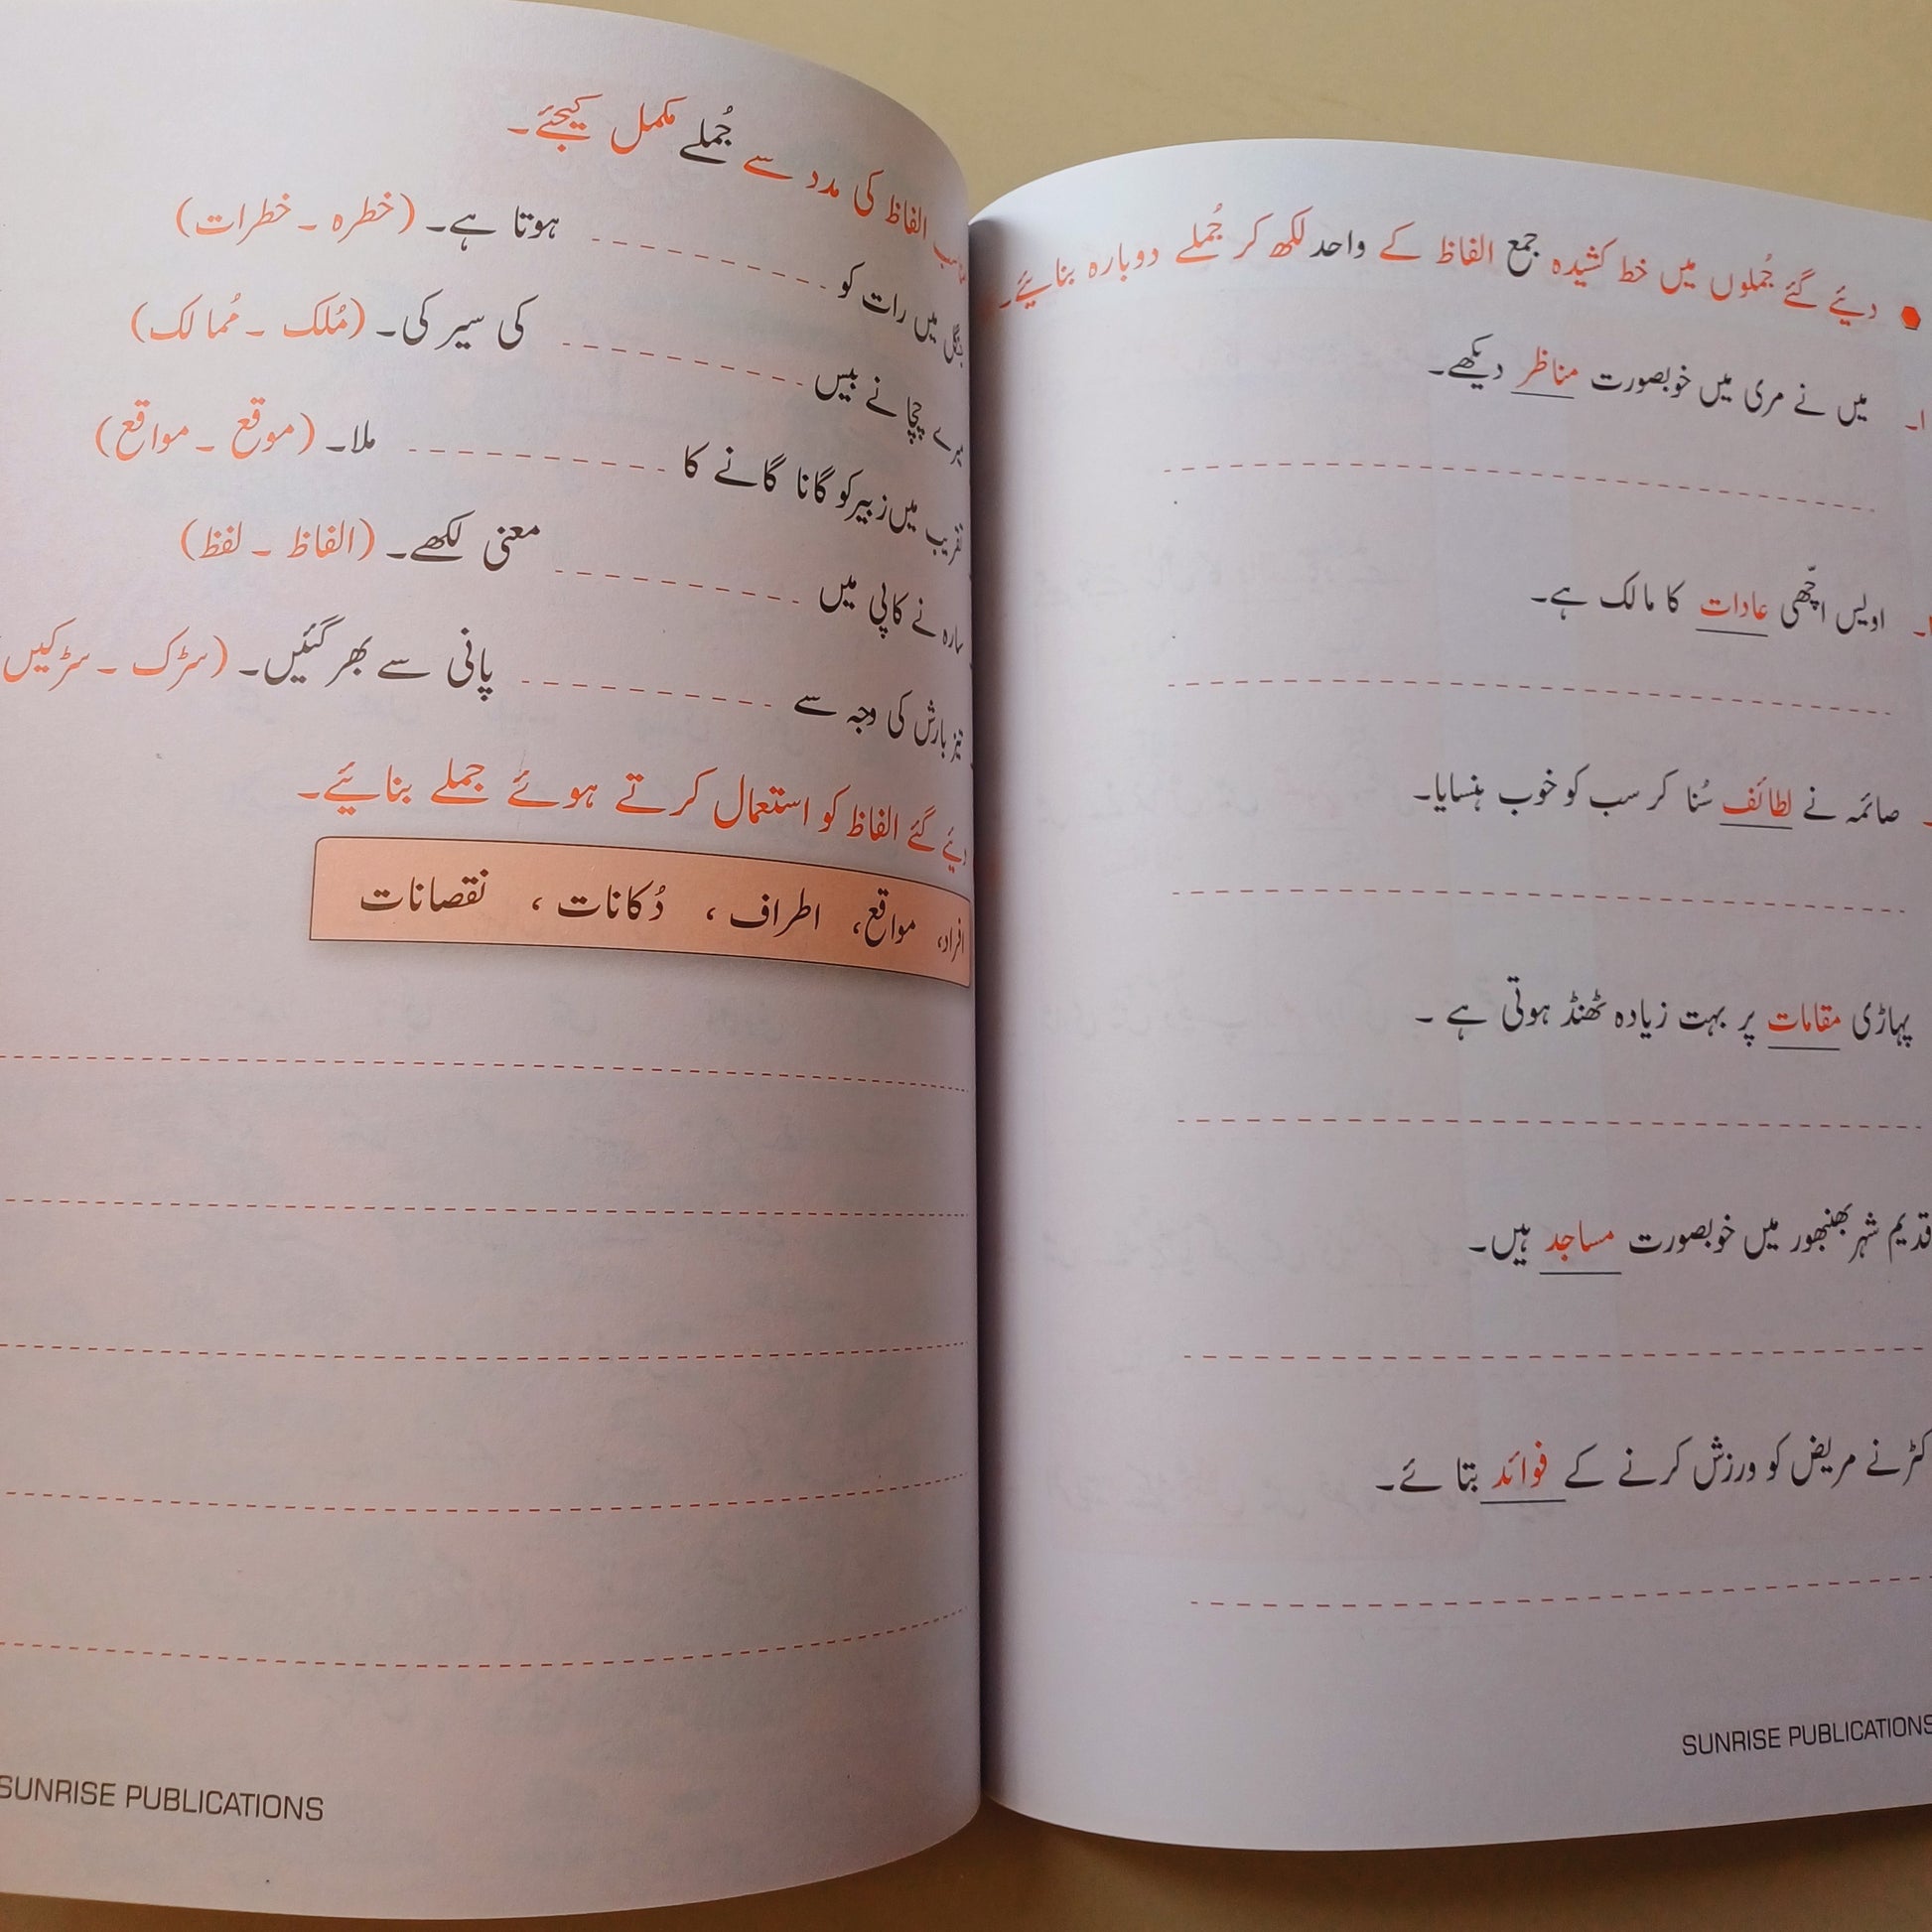 ● دیئے گئے جُملوں میں خط کشیدہ جمع الفاظ کے واحد لکھ کر جُملے دوبارہ بنائیے۔
۱۔ میں نے مری میں خوبصورت مناظر دیکھے۔
اویس اچّھی عادات کا مالک ہے۔
صائمہ نے لطائف سُنا کر سب کو خوب ہنسایا۔
پہاڑی مقامات پر بہت زیادہ ٹھنڈ ہوتی ہے ۔
قدیم شہر بھنبھور میں خوبصورت مساجد ہیں۔
نے مریض کو ورزش کرنے کے فوائد بتائے۔
SUNRISE PUBLICATIONS
الفاظ کی مدد سے جُملے مکمل کیجئے۔
میں رات کو ------------ ہوتا ہے۔ (خطرہ ۔ خطرات)
چچا نے بیس ------------ کی سیر کی۔ (مُلک ۔ مُمالک)
تقریب میں زبیر کو گانا گانے کا ------------ ملا۔ (موقع ۔ مواقع)
سارہ نے کاپی میں ------------ معنی لکھے۔ (الفاظ ۔ لفظ)
تیز بارش کی وجہ سے ------------ پانی سے بھر گئیں۔ (سڑک ۔ سڑکیں
دیئے گئے الفاظ کو استعمال کرتے ہوئے جملے بنائیے۔
افراد، مواقع، اطراف ، دُکانات ، نقصانات
SUNRISE PUBLICATIONS